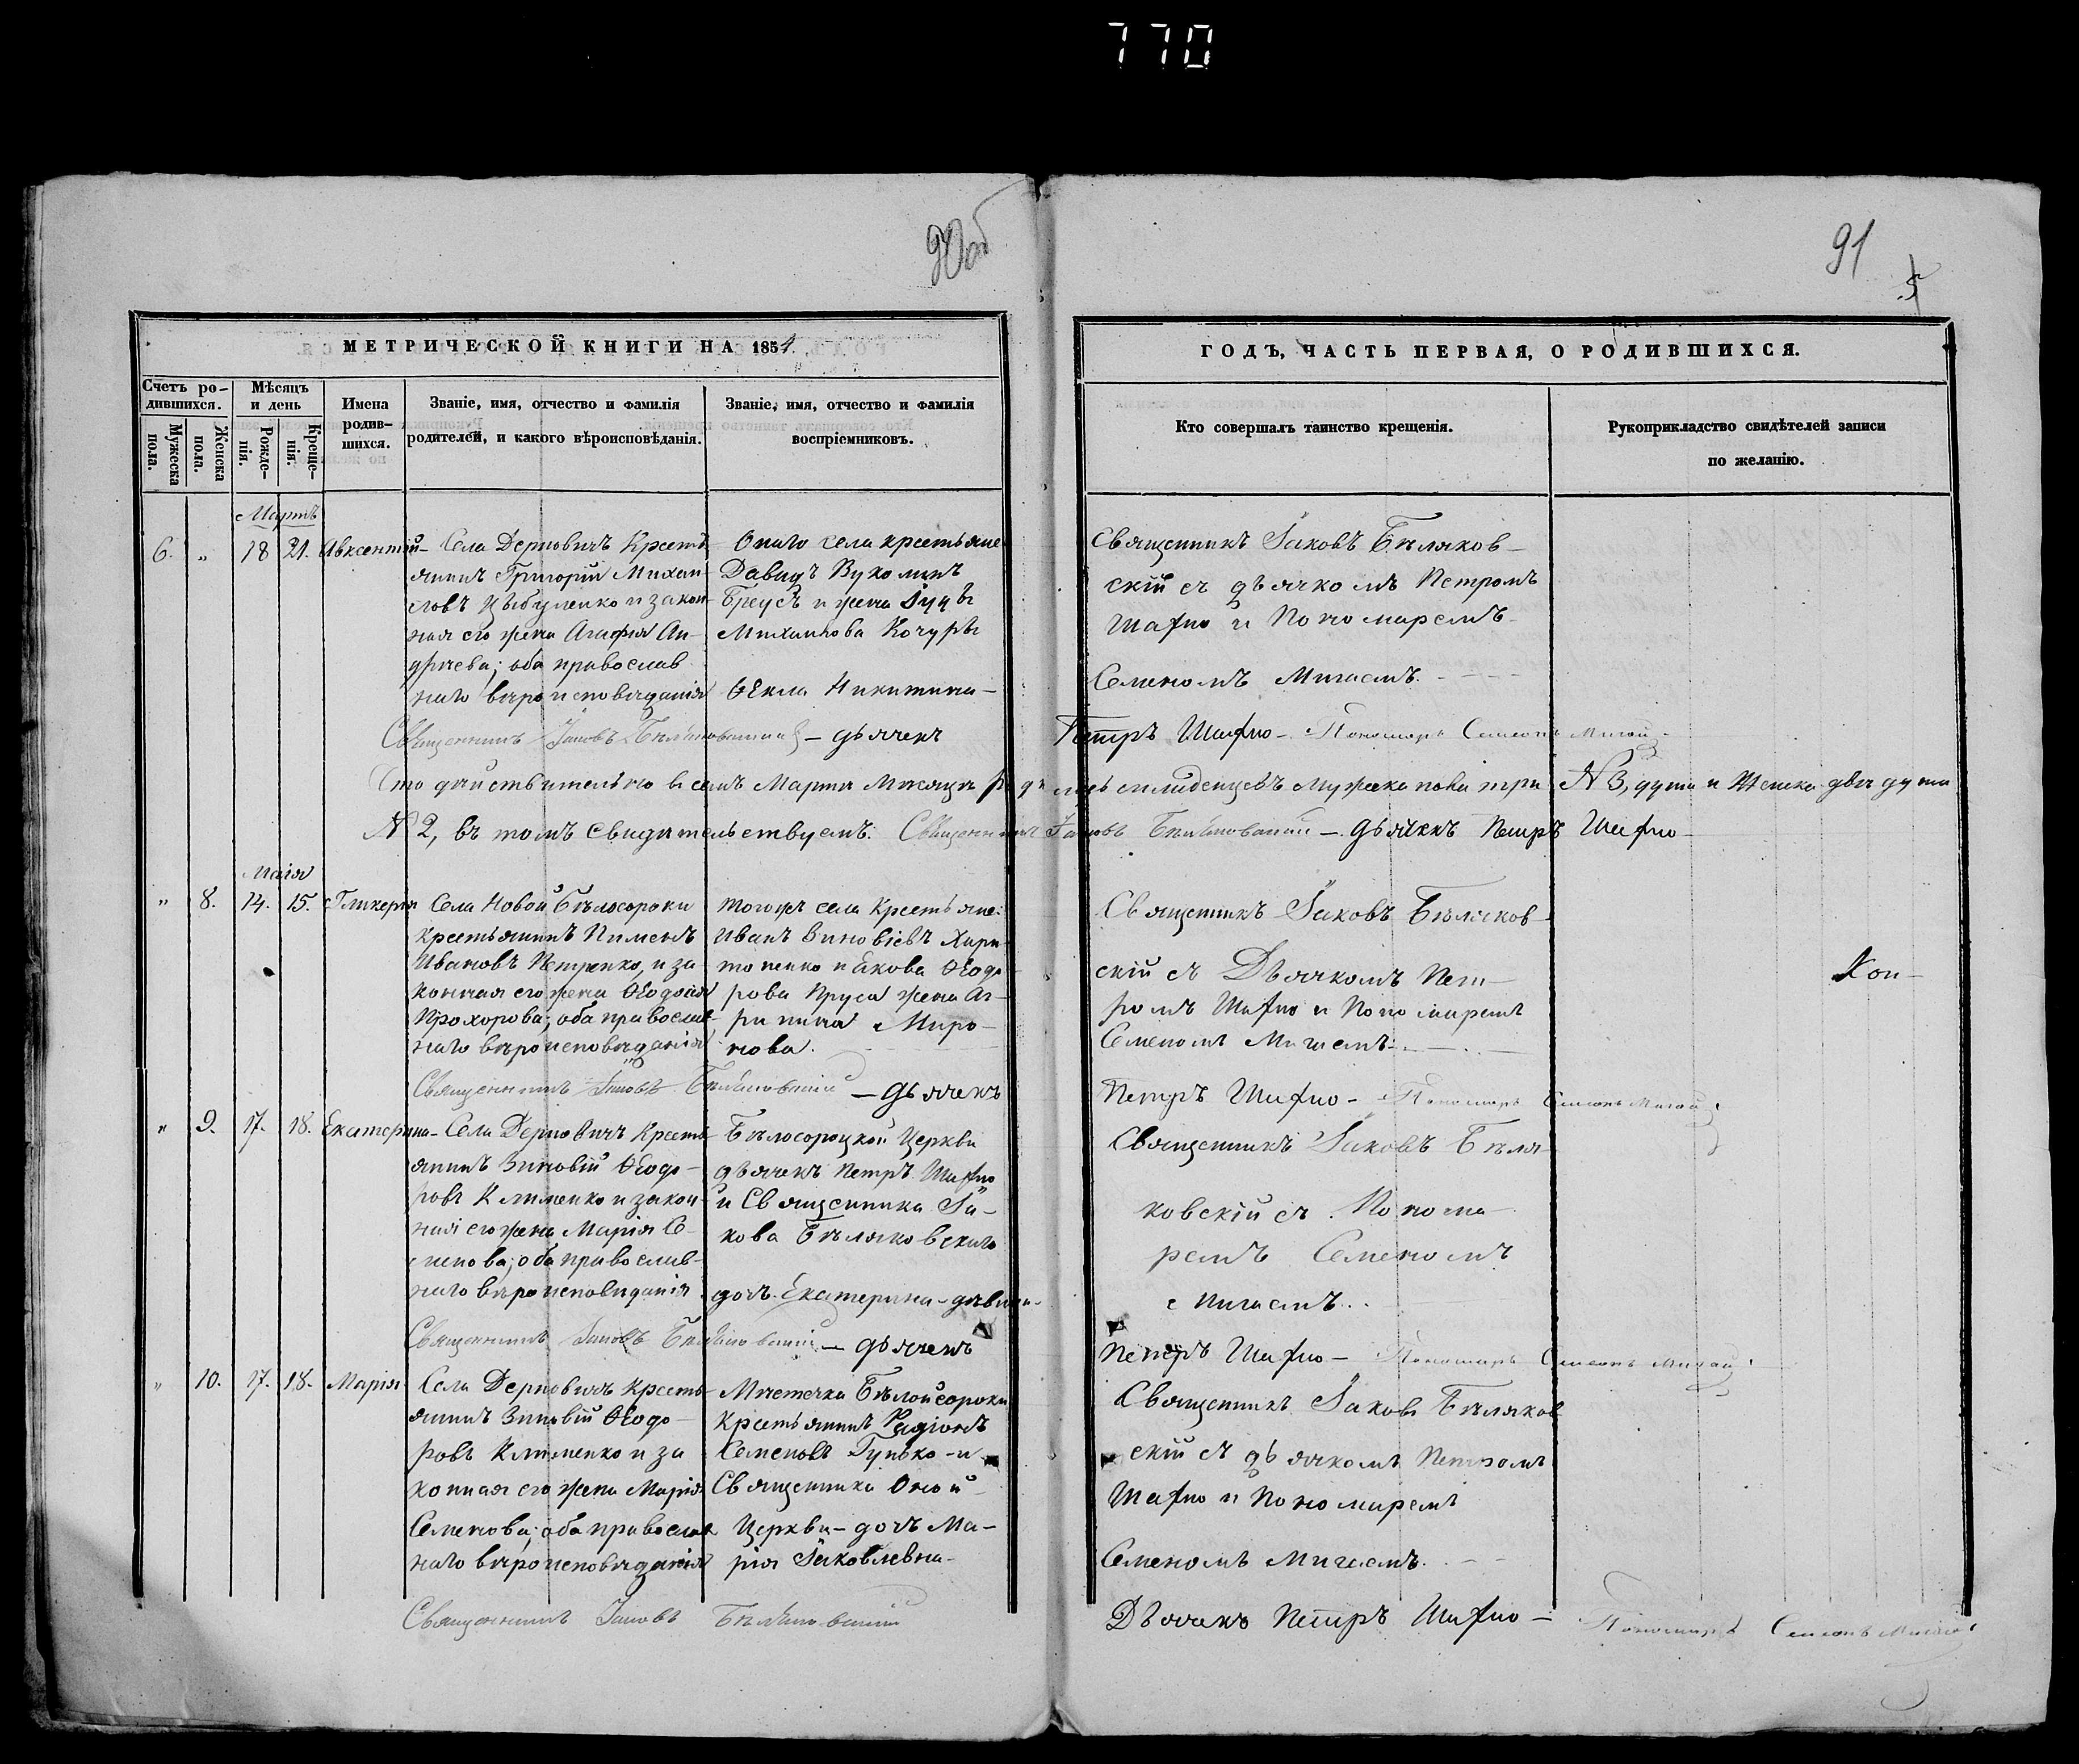 770
90об
91
5
МЕТРИЧЕСКОЙ КНИГИ НА 1854.
ГОДЪ, ЧАСТЬ ПЕРВАЯ, О РОДИВШИХСЯ.
Счетъ ро-
дившихся.
Мужеска
пола.
Женска
пола.
Мѣсяцъ
и день
Рожде-
нія.
Креще-
нія.
Имена
родив-
шихся.
Званіе, имя, отчество и фамилія
родителей, и какого вѣроисповѣданія.
Званіе, имя, отчество и фамилія
воспріемниковъ.
Кто совершалъ таинство крещенія.
Рукоприкладство свидѣтелей записи
по желанію.
Мартъ
6. " 18 21. Авксентій
Села Дерновичъ Кресть
янинъ Григорій Михаи
ловъ Цыбуленко и закон
ная его жена Агафія Ан-
дреева; оба православ
наго вѣроисповѣданія
Онаго села крестьяне
Давидъ Вуколинъ
Михаилова
Ѳекла Никитина-
Священникъ Іаковъ Бѣляков-
скій съ дьячкомъ Петромъ
и Пономаремъ
Семеномъ Мигаемъ.
Священникъ Іаковъ Бѣляковскій - дьячекъ
Петръ - Пономарь Семеонъ Мигай
Что дѣйствительно въ семъ Мартѣ Мѣсяцѣ родилось младенцевъ мужеска пола три № 3, души и Женска двѣ души
№ 2, въ томъ свидѣтельствуемъ. Священникъ Іаковъ Бѣляковскій - Дьячекъ Петръ
Маія
" 8. 14. 15. Гликерія
Села Новой Бѣлосороки
крестьянинъ Пименъ
Ивановъ Петренко, и за-
конная его жена Ѳеодосія
Прохорова; оба православ
наго вѣроисповѣданія
тогожъ села Крестьяне:
Иванъ Зиновіевъ Хари-
тоненко и Якова Ѳеодо
рова Пруса жена Аг-
рипина Миро-
нова.
Священникъ Іаковъ Бѣляков-
скій съ Дьячкомъ Пет-
ромъ и Пономаремъ
Семеномъ Мигаемъ.
Кон-
Священникъ Іаковъ Бѣляковскій - дьячекъ
Петръ - Пономарь Семеонъ Мигай
" 9. 17. 18. Екатерина
Села Дерновичъ Кресть
янинъ Зиновій Ѳеодо-
ровъ Клименко и закон-
ная его жена Марія Се-
менова; оба православ-
наго вѣроисповѣданія
Бѣлосороцкой Церкви
дьячекъ Петръ
и Священника Іа-
кова Бѣляковскаго
дочь Екатерина - дѣвица-
Священникъ Іаковъ Бѣля
ковскій съ Понома
ремъ Семеномъ
Мигаемъ..
Священникъ Іаковъ Бѣляковскій - дьячекъ
Петръ - Пономарь Семеонъ Мигай
" 10. 17. 18. Марія
Села Дерновичъ Кресть-
янинъ Зиновій Ѳеодо-
ровъ Клименко и за
конная его жена Марія
Семенова; оба православ
наго вѣроисповѣданія
Мѣстечка Бѣлойсороки
Крестьянинъ Радіонъ
Семеновъ Гунько - и
Священника Оной
Церкви - дочь Ма-
рія Іаковлевна-
Священникъ Іаковъ Бѣляков
скій съ дьячкомъ Петромъ
и Пономаремъ
Семеномъ Мигаемъ.
Священникъ Іаковъ Бѣляковскій
Дьячекъ Петръ - Пономарь Семеонъ Мигай